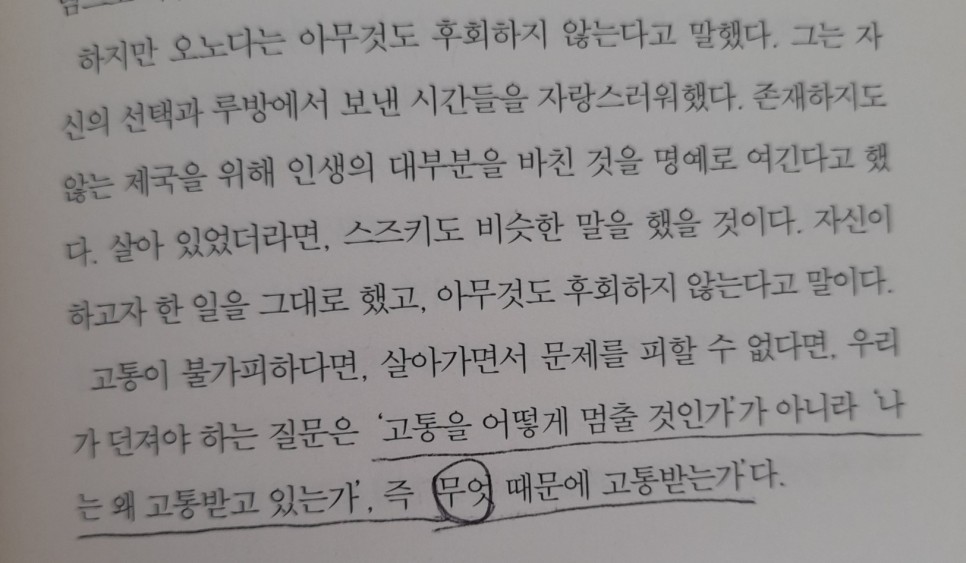 하지만 오노다는 아무것도 후회하지 않는다고 말했다. 그는 자
신의 선택과 루방에서 보낸 시간들을 자랑스러워했다. 존재하지도
않는 제국을 위해 인생의 대부분을 바친 것을 명예로 여긴다고 했
다. 살아 있었더라면, 스즈키도 비슷한 말을 했을 것이다. 자신이
하고자 한 일을 그대로 했고, 아무것도 후회하지 않는다고 말이다.
고통이 불가피하다면, 살아가면서 문제를 피할 수 없다면, 우리
가 던져야 하는 질문은 ‘고통을 어떻게 멈출 것인가’가 아니라 ‘나
는 왜 고통받고 있는가’, 즉 무엇 때문에 고통받는가’다.